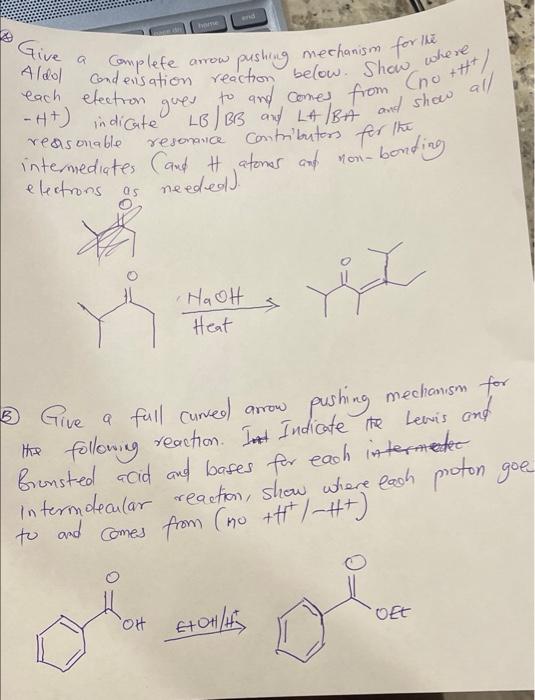 home
end
A Give a complete arrow pushing mechanism for the
Aldol condensation reaction below. Show where
each electron goes to and comes from (no +H+/
-H+) indicate LB/BB and LA/BA and show all
reasonable resonance contributors for the
intermediates (and H atoms and non-bonding
electrons as needed).
O
O
NaOH
Heat
O
B Give a full curved arrow pushing mechanism for
the following reaction. Int Indicate the Lewis and
Bronsted acid and bases for each intermedec
Intermolecular reaction, show where each proton goe
to and comes from (no +H+/-H+)
O
OH
EtOH/H+
O
OEt